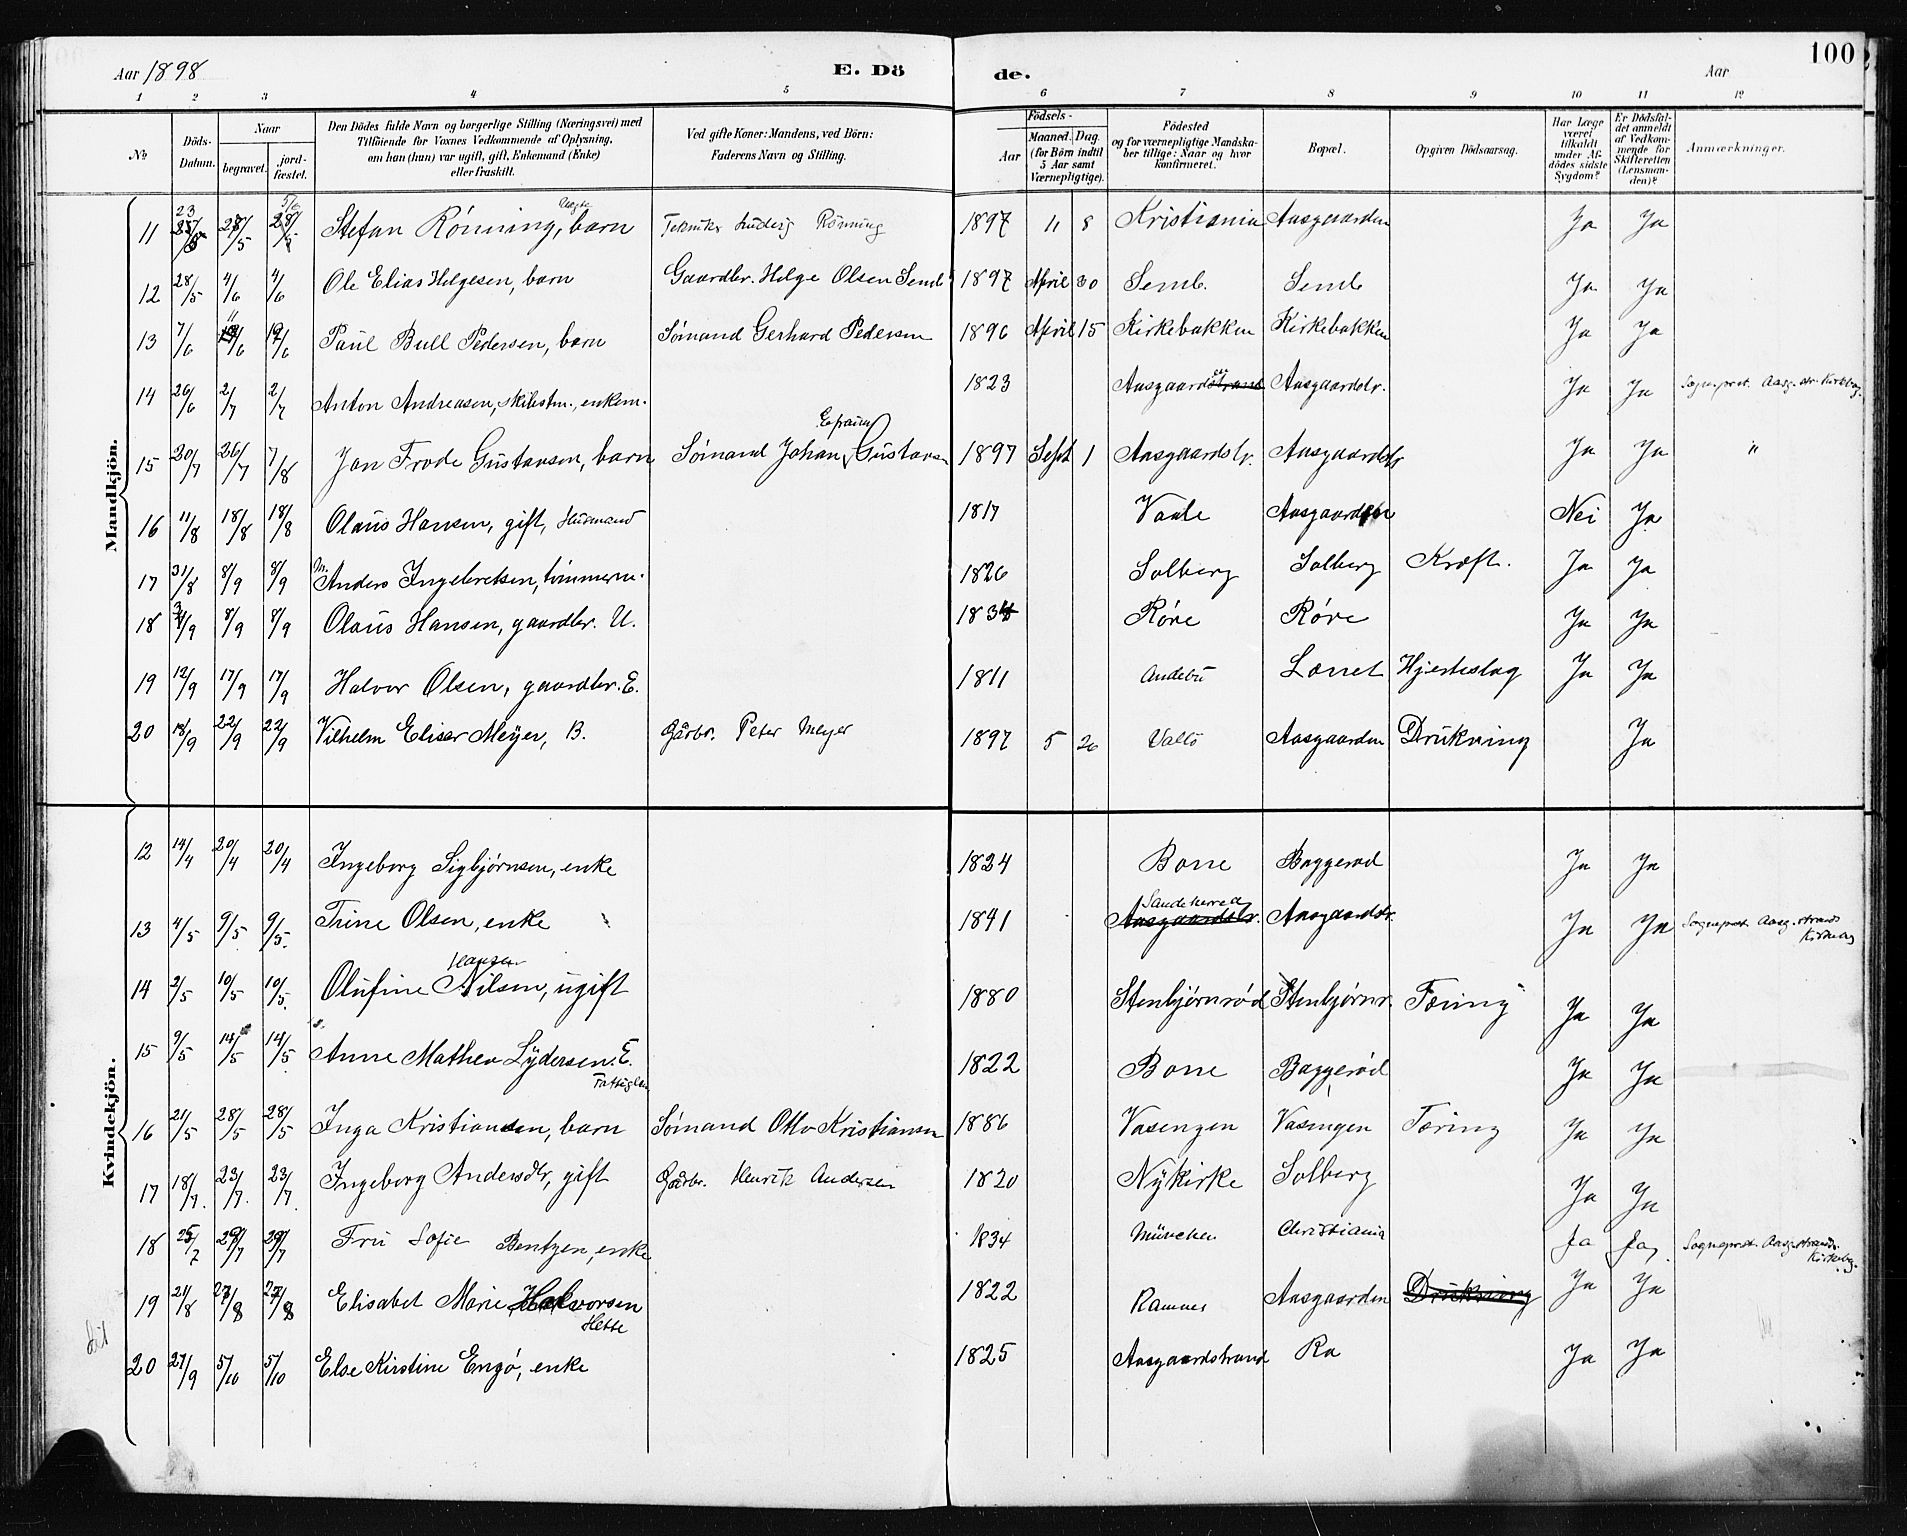 Aar 1898 E. Dö de. Aar 100
1 2 3 4 5 6 7 8 9 10 11 12
No Döds-Datum. Naar begravet. jordfæstet. Den Dödes fulde Navn og borgerlige Stilling (Næringsvei) med Tilföiende for Voxnes Vedkommende af Oplysning, om han (hun) var ugift, gift, Enkemand (Enke) eller fraskilt. Ved gifte Koner: Mandens, ved Börn: Faderens Navn og Stilling. Födsels- Aar Maaned. Dag. (for Börn indtil 5 Aar samt Værnepligtige). Födested og for værnepligtige Mandskaber tillige: Naar og hvor konfirmeret. Bopæl. Opgiven Dödsaarsag. Har Læge været tilkaldt under Afdödes sidste Sygdom? Er Dödsfaldet anmeldt af Vedkommende for Skifteretten (Lensmanden)? Anmærkninger.
Mandkjön.
11 23/5 28/5 5/6 Stefan Rönning, uægte barn Tekniker Ludvig Rönning 1897 11 8 Kristiania Aasgaarden Ja Ja
12 28/5 4/6 4/6 Ole Elias Helgesen, barn Gaardbr. Helge Olsen Semb 1897 April 30 Semb. Semb Ja Ja
13 7/6 11/6 12/6 Paul Bull Pedersen, barn Sømand Gerhard Pedersen 1896 April 15 Kirkebakken Kirkebakken Ja Ja
14 26/6 2/7 2/7 Anton Andreasen, skibstm., enkem. 1823 Aasgaardstrand Aasgaardstr. Ja Ja Sognepræst. Aasg.str. Kirkebog.
15 20/7 26/7 7/8 Jon Frode Gustavsen, barn Sømand Johan Efraim Gustavsen 1897 Sept 1 Aasgaardstr. Aasgaardstr Ja Ja "
16 11/8 18/8 18/8 Olaus Hansen, gift, Husmand 1817 Vaale Aasgaarden Nei Ja
17 31/8 8/9 8/9 Anders Ingebretsen, tømmerm. 1826 Solberg Solberg Kræft. Ja Ja
18 8/9 8/9 Olaus Hansen, gaardbr. U. 1834 Røre Røre Ja Ja
19 12/9 17/9 17/9 Halvor Olsen, gaardbr. E. 1811 Andebu Lørret Hjerteslag Ja Ja
20 18/9 22/9 22/9 Vilhelm Eliser Meÿer, B. Gårbr. Peter Meyer 1897 5 26 Vallö Aasgaarden Drukning Ja
Kvindekjön.
12 14/4 20/4 20/4 Ingeborg Sigbjørnsen, enke 1824 Borre Baggerød Ja Ja
13 4/5 9/5 9/5. Trine Olsen, enke 1841 Sandeherred Aasgaardstr. Aasgaardstr. Ja Ja Sognepræst. Aasg.strands Kirkebog
14 2/5 10/5 10/5. Olufine Hansen Nilsen, ugift 1880 Stenbjørnrød Stenbjørnr. Tæring Ja Ja
15 9/5 14/5 14/5 Anne Mathea Lÿdersen. E. Fattiglem 1822 Borre Baggerød Ja Ja
16 21/5 28/5 28/5 Inga Kristiansen, barn Sømand Otto Kristiansen 1886 Vasengen Vasengen Tæring Ja Ja
17 18/7. 23/7. 23/7. Ingeborg Andersdtr, gift Gårbr. Henrik Andersen 1820 Nÿkirke Solberg Ja Ja
18 25/7 29/7 29/7 Fru Sofie Bentzen, enke 1834 München Christiania Ja Ja, Sognepræst. Aasg.strands Kirkebog.
19 21/8 27/8 27/8 Elisabet Marie Halvorsen Hette 1822 Ramnes Aasgaarden Drukning Ja Ja
20 27/9 5/10 5/10 Else Kirstine Engø, enke 1825 Aasgaardstrand Ra Ja Ja